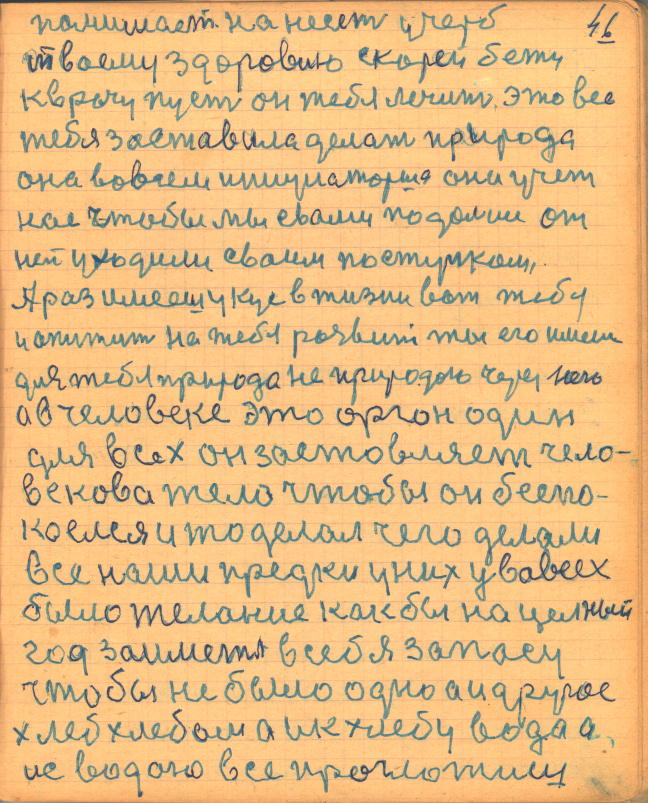 46
понимает. нанесет ущерб
твоему здоровию скорей бежи
к врачу пуст он тебя лечит. это все
тебя заставила делат природа
она вовсем инициаторша она учет
нас чтобы мы с вами подолши от
ней уходили своим поступком,
А раз имееш укус в жизни вот тебу
и опитит на тебя развит ты его имееш
для тебя природа не природою через него
а в человеке это орган один
для всех он заставляет чело-
векова тело чтобы он беспо-
коелся и то делал чего делали
все наши предки у них у вовсех
было желание как бы на целный
год заимета всебя запасу
чтобы не было одно а и другое
хлеб хлебом а и к хлебу вода а,
ис водою все проглотиш